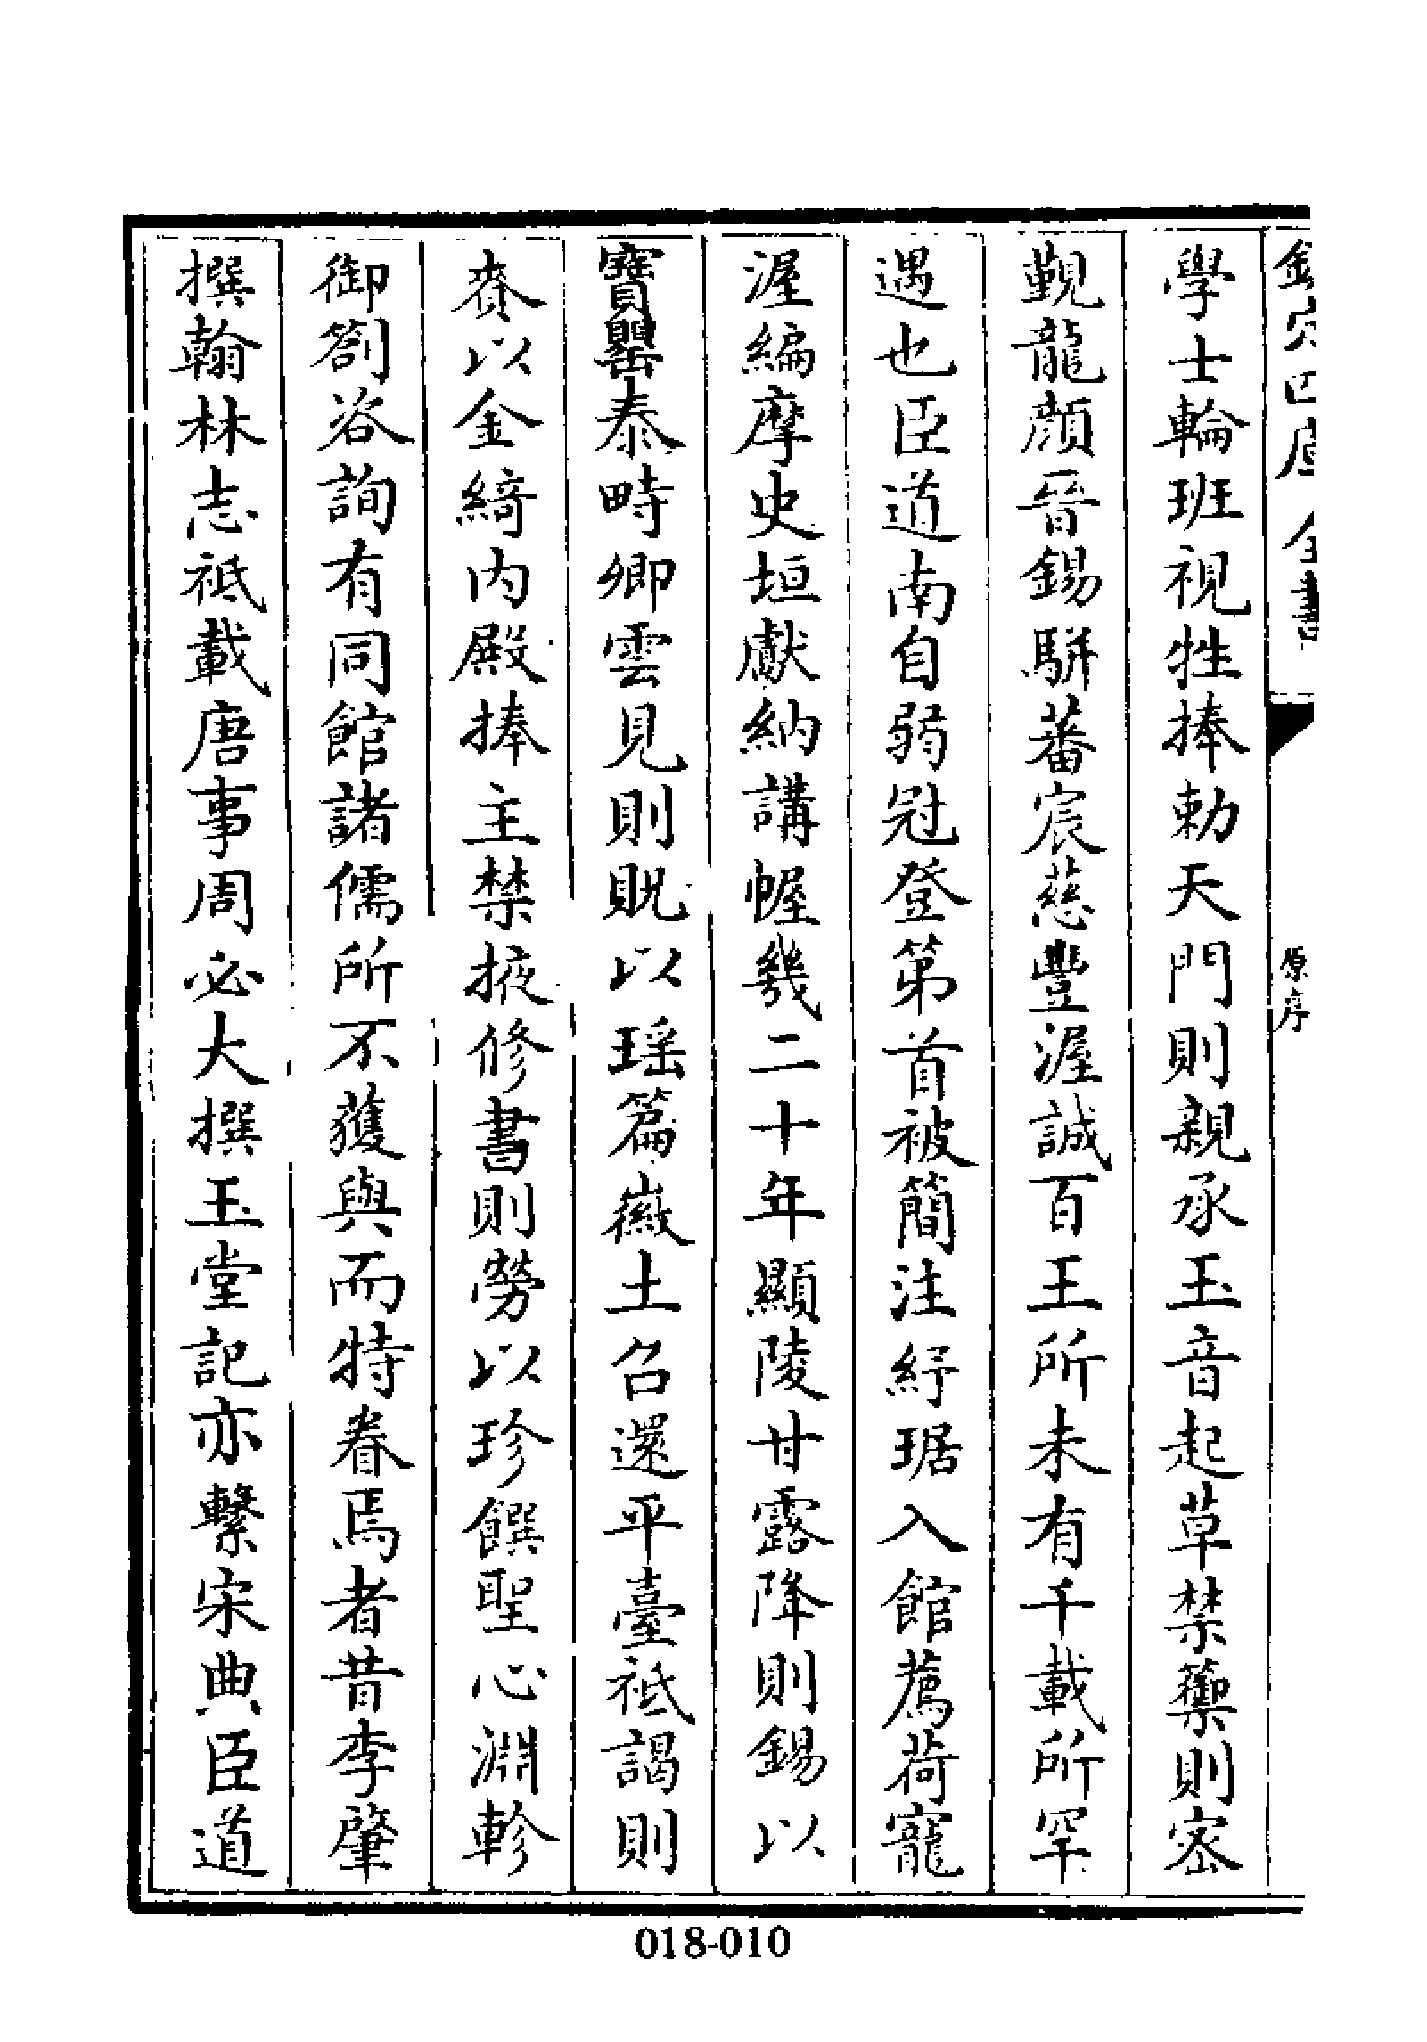 欽定四庫全書
原序
學士輪班視牲捧勅天門則親承玉音起草禁籞則密
覲龍顔晉錫駢蕃宸慈豐渥誠百王所未有千載所罕
遇也臣道南自弱冠登第首被簡注紓琚入館薦荷寵
渥編摩史垣獻納講幄幾二十年顯陵甘露降則錫以
寶罌泰畤卿雲見則貺以瑶篇徽土召還平臺祗謁則
賚以金綺内殿捧主禁掖修書則勞以珍饌聖心淵軫
御劄咨詢有同館諸儒所不獲與而特眷焉者昔李肇
撰翰林志祗載唐事周必大撰玉堂記亦繫宋典臣道
018-010